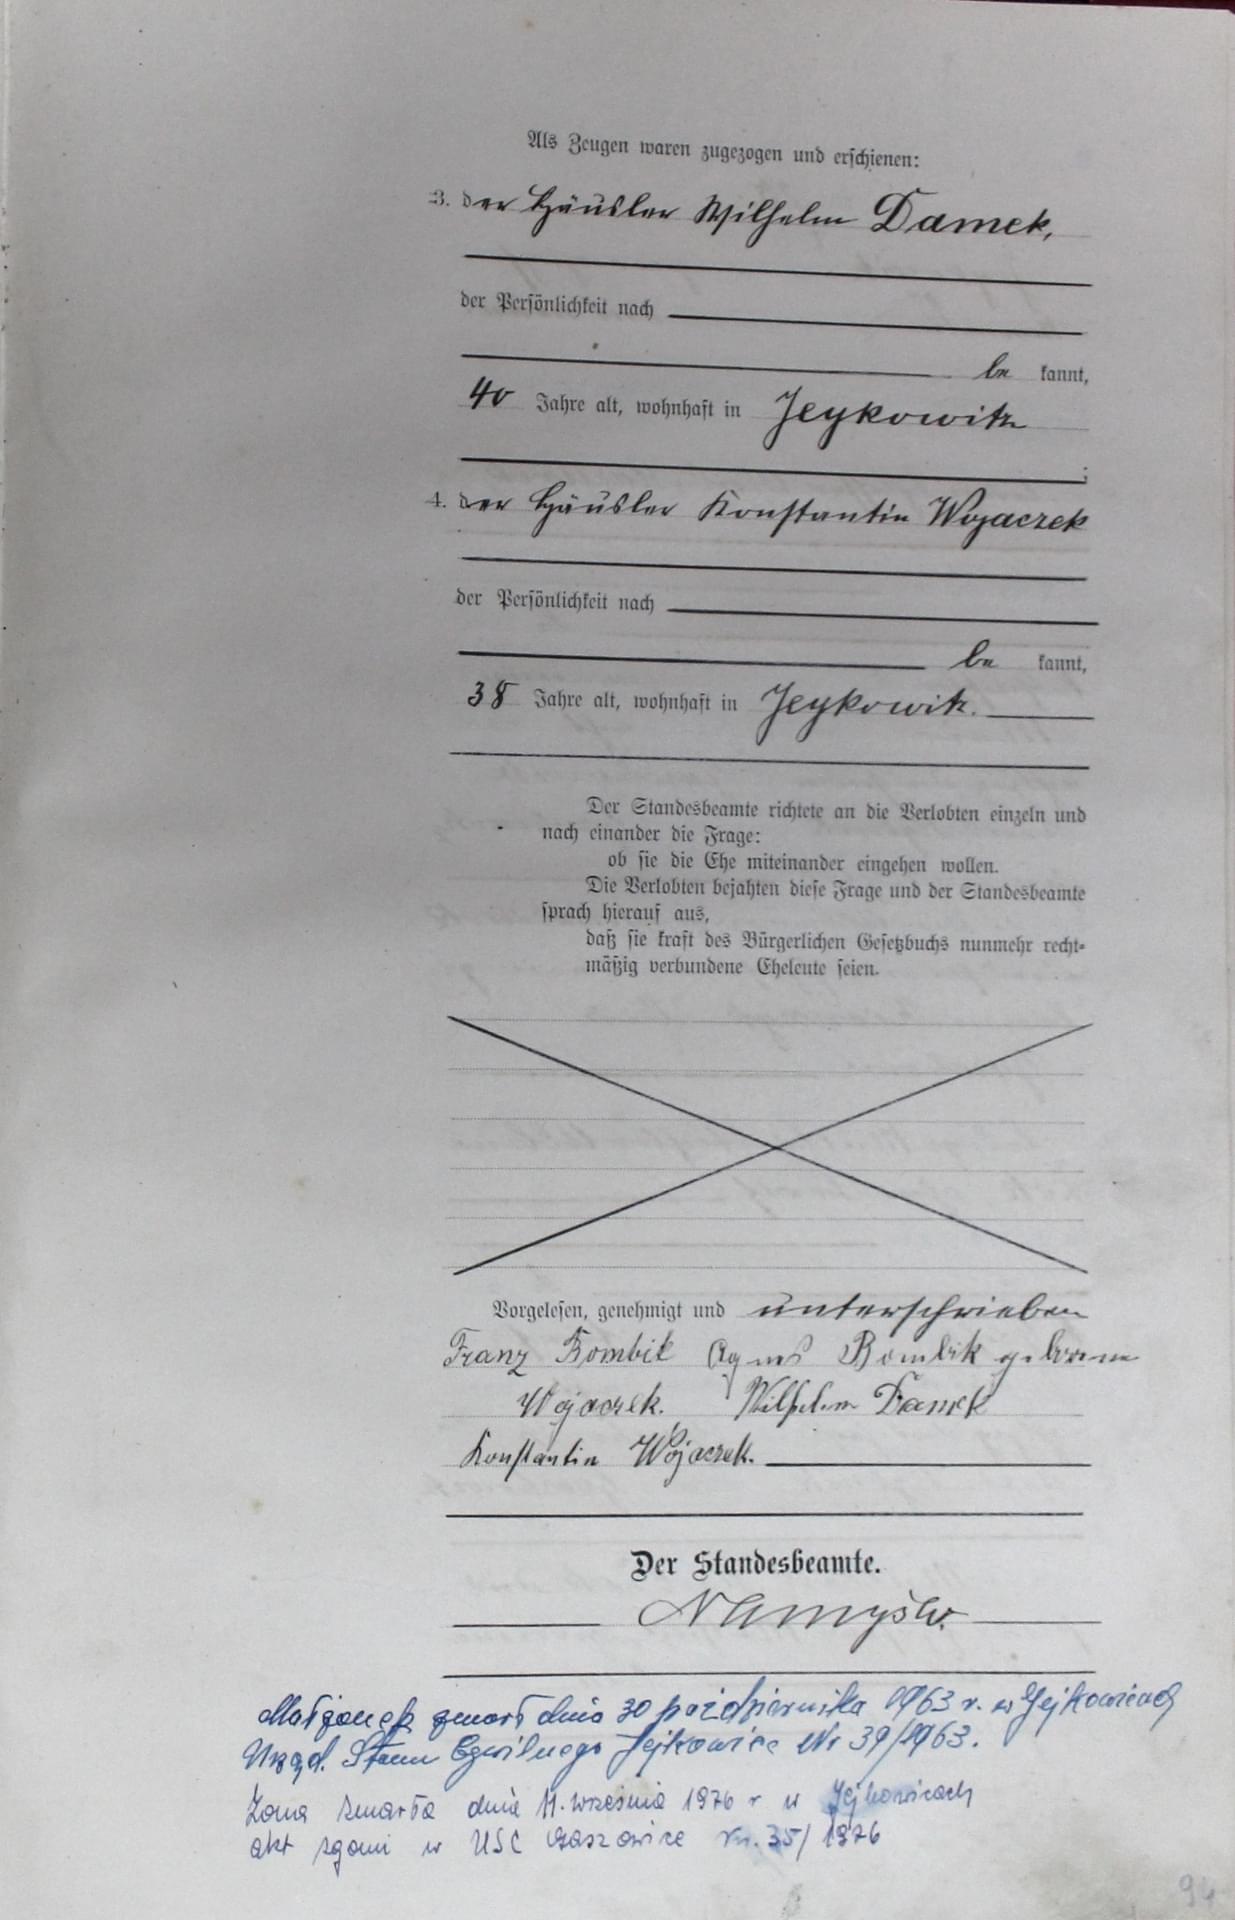 Als Zeugen waren zugezogen und erschienen:
3. der Häusler Wilhelm Damek,
der Persönlichkeit nach
be kannt,
40 Jahre alt, wohnhaft in Jeykowitz
;
4. der Häusler Konstantin Wojaczek
der Persönlichkeit nach
be kannt,
38 Jahre alt, wohnhaft in Jeykowitz.
Der Standesbeamte richtete an die Verlobten einzeln und
nach einander die Frage:
ob sie die Ehe miteinander eingehen wollen.
Die Verlobten bejahten diese Frage und der Standesbeamte
sprach hierauf aus,
daß sie kraft des Bürgerlichen Gesetzbuchs nunmehr recht-
mäßig verbundene Eheleute seien.
Vorgelesen, genehmigt und unterschrieben
Franz Bombik Agnes Bombik geborene
Wojaczek. Wilhelm Damek
Konstantin Wojaczek.
Der Standesbeamte.
Małżonek zmarł dnia 30 października 1963 r. w Jejkowicach
Urząd. Stanu Cywilnego Jejkowice Nr 39/1963.
Żona zmarła dnia 11. września 1976 r w Jejkowicach
akt zgonu w USC Gaszowice Nr. 35/1976
94